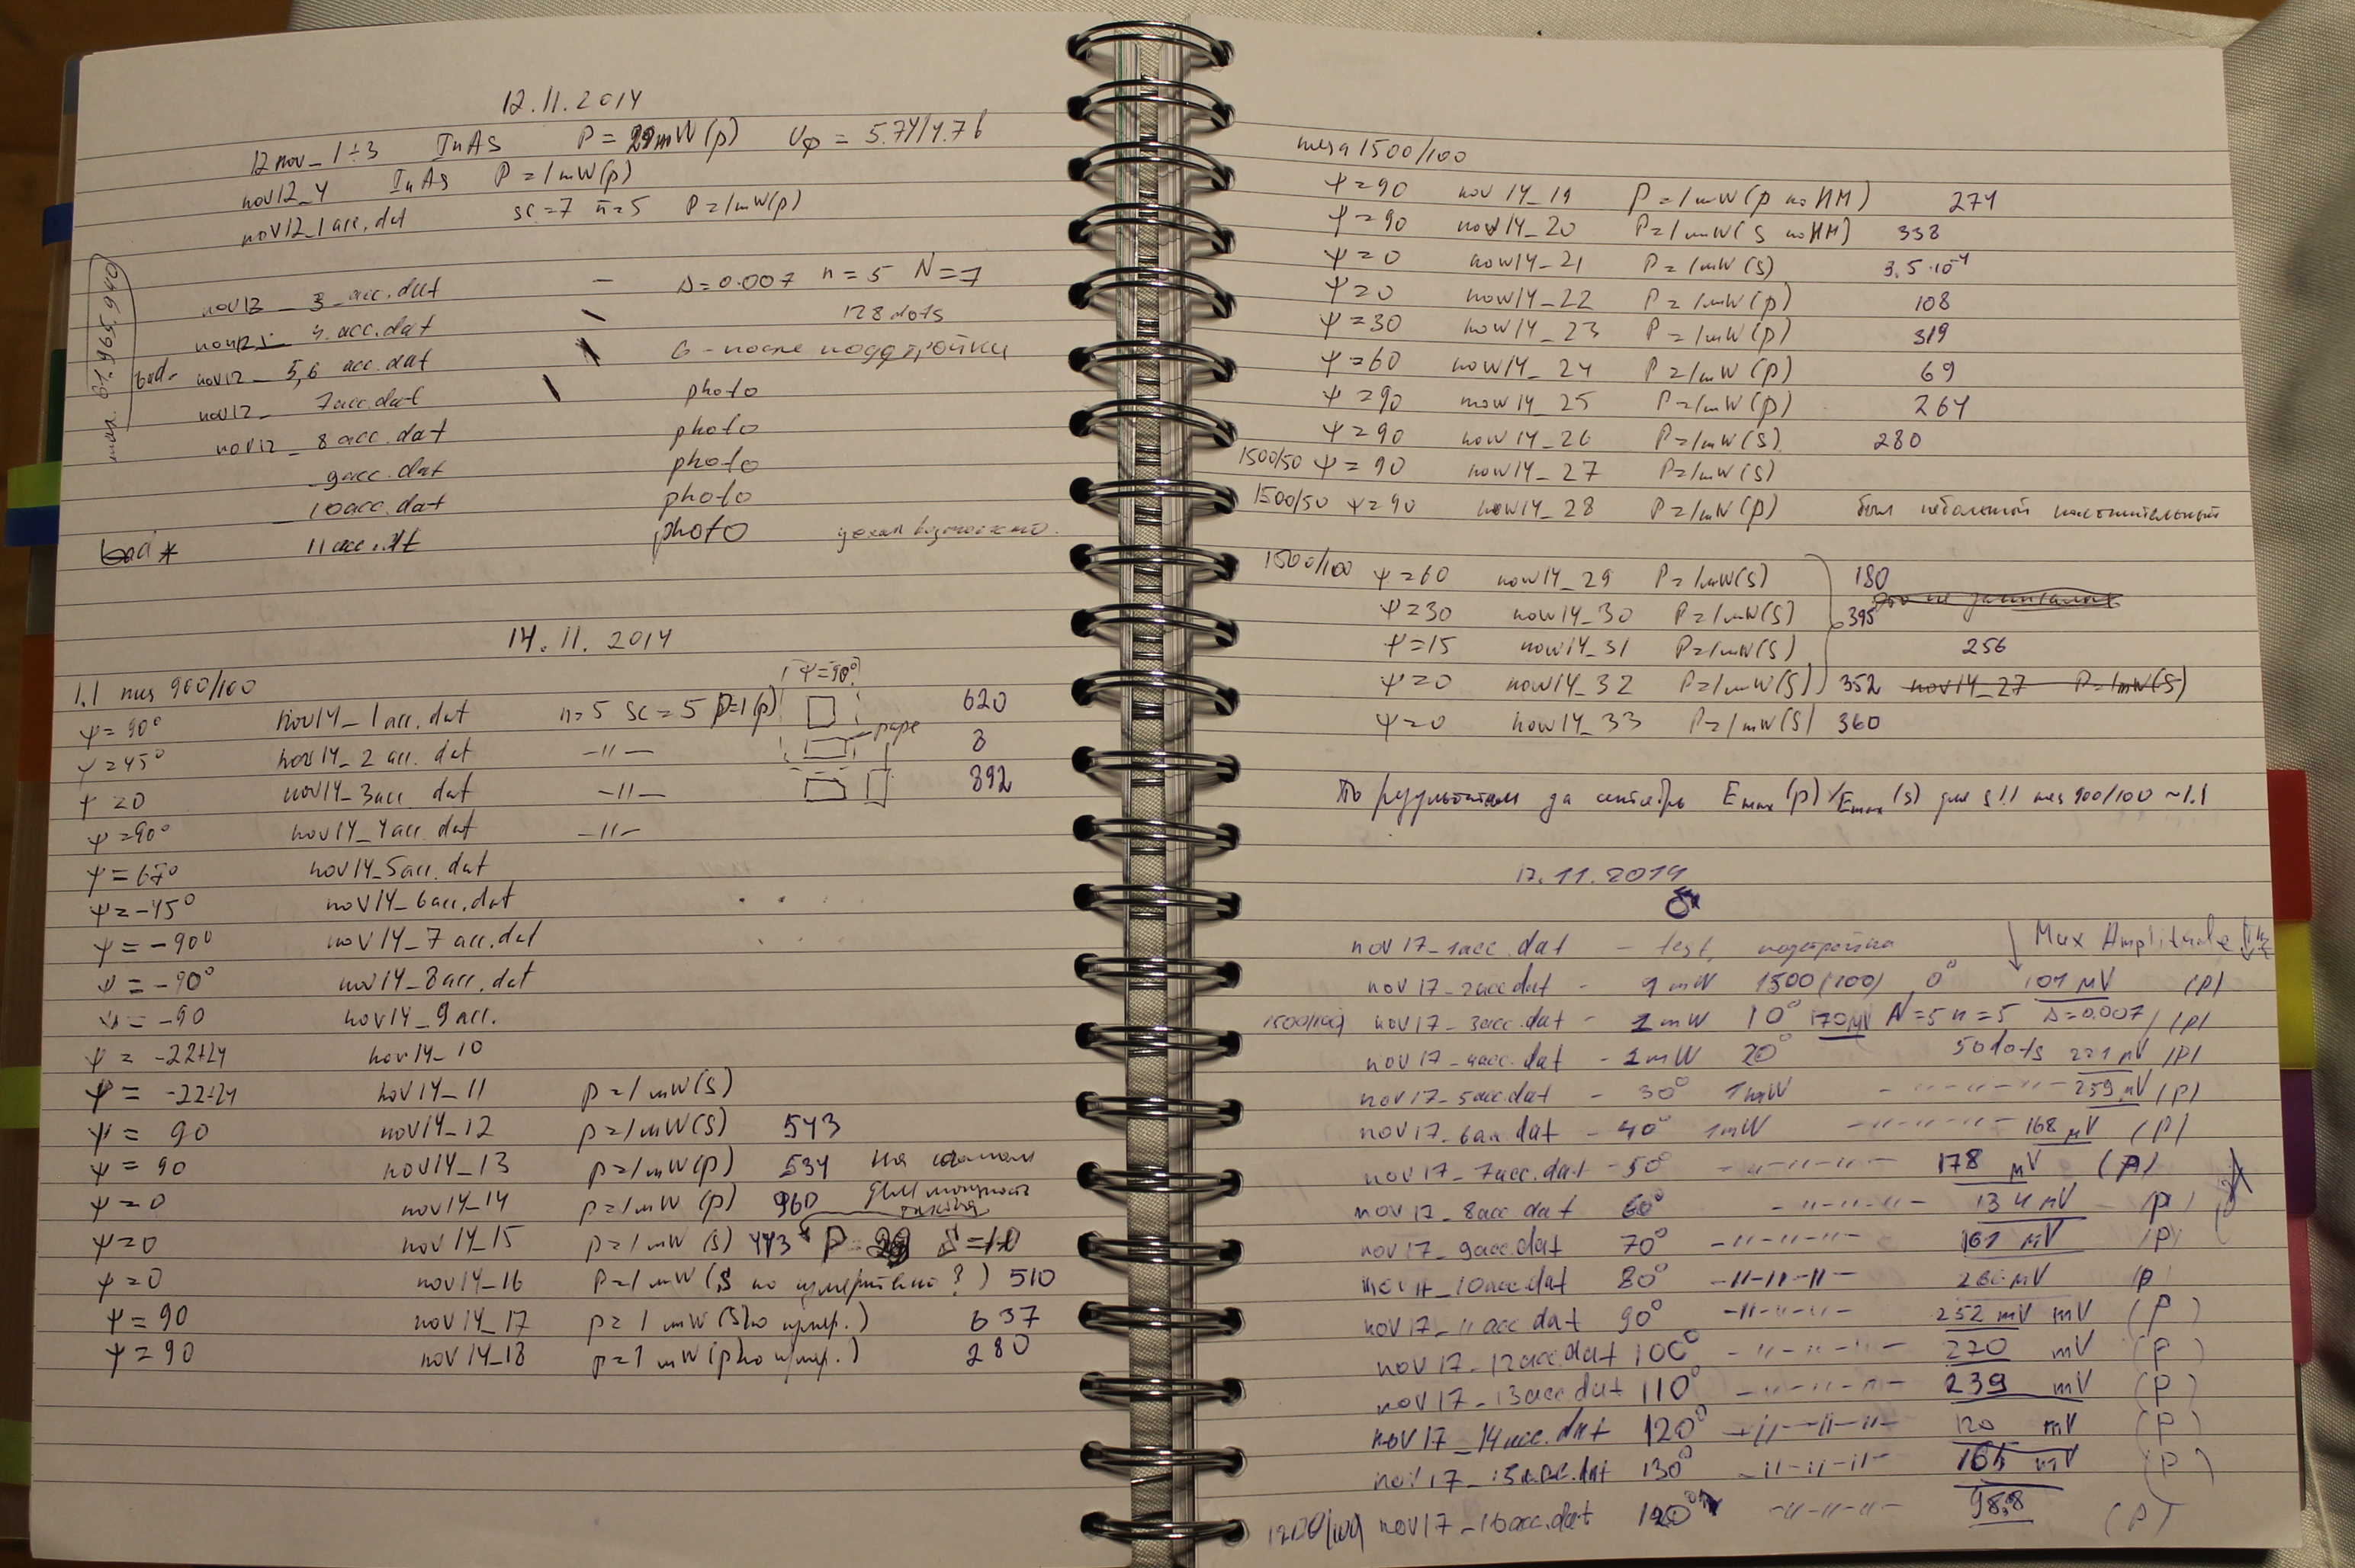 12.11.2014
12nov_1÷3 InAs P = 29mW(p) Uφ = 5.74/4.76
nov12_4 InAs P = 1mW(p)
nov12_1acc.dat sc=7 n=5 P=1mW(p)
max 61.965.940
nov12_3_acc.dat — Δ=0.007 n=5 N=7
acc.dat 128 dots
bad- nov12_5,6 acc.dat 6 - после подстройки
nov12_ 7acc.dat photo
nov12_8acc.dat photo
_9acc.dat photo
_10acc.dat photo
bad * 11acc.dt photo
14.11.2014
1.1 mes 900/100 ψ=90°
ψ=90° nov14_1acc.dat n=5 sc=5 P=1(p) 620
ψ=45° nov14_2acc.dat -〃- 8
ψ=0 nov14_3acc.dat -〃- 892
ψ=90° nov14_4acc.dat -〃-
ψ=67° nov14_5acc.dat
ψ=-45° nov14_6acc.dat
ψ=-90° nov14_7acc.dat
ψ=-90° nov14_8acc.dat
ψ=-90 nov14_9acc.
ψ= -22+24 nov14_10
ψ= -22+24 nov14_11 P=1mW(s)
ψ= 90 nov14_12 P=1mW(s) 543
ψ= 90 nov14_13 P=1mW(p) 534 на
ψ=0 nov14_14 P=1mW(p) 960
ψ=0 nov14_15 P=1mW(s) 443
ψ=0 nov14_16 P=1mW(s по ?) 510
ψ=90 nov14_17 P=1mW(s по ) 637
ψ=90 nov14_18 P=1mW(p по ) 280
mesa 1500/100
ψ=90 nov14_19 P=1mW(p по НМ) 274
ψ=90 nov14_20 P=1mW(s по НМ) 338
ψ=0 nov14_21 P=1mW(s) 3.5·10⁻⁴
ψ=0 nov14_22 P=1mW(p) 108
ψ=30 nov14_23 P=1mW(p) 319
ψ=60 nov14_24 P=1mW(p) 69
ψ=90 nov14_25 P=1mW(p) 264
ψ=90 nov14_26 P=1mW(s) 280
1500/50 ψ=90 nov14_27 P=1mW(s)
1500/50 ψ=90 nov14_28 P=1mW(p) был небольшой
1500/100 ψ=60 nov14_29 P=1mW(s) 180
ψ=30 nov14_30 P=1mW(s) 395
ψ=15 nov14_31 P=1mW(s) 256
ψ=0 nov14_32 P=1mW(s) 352 nov14_27 P=1mW(s)
ψ=0 nov14_33 P=1mW(s) 360
По результатам за сентябрь Emax(p)/Emax(s) для 1.1 mes 900/100 ~1.1
17.11.2014
nov17_1acc.dat - test, подстройка ↓ Max Amplitude
nov17_2acc.dat - 1mW 1500(100) 0° 101 μV (p)
1500/100 nov17_3acc.dat - 1mW 10° 170μV N=5 n=5 Δ=0.007 (p)
nov17_4acc.dat - 1mW 20° 50dots 221 μV (p)
nov17_5acc.dat - 30° 1mW -〃-〃-〃- 259 μV (p)
nov17_6acc.dat - 40° 1mW -〃-〃-〃- 168 μV (p)
nov17_7acc.dat - 50° -〃-〃-〃- 178 μV (p)
nov17_8acc.dat 60° -〃-〃-〃- 134 μV (p)
nov17_9acc.dat 70° -〃-〃-〃- 161 μV (p)
nov17_10acc.dat 80° -〃-〃-〃- μV (p)
nov17_11acc.dat 90° -〃-〃-〃- 252 mV mV (p)
nov17_12acc.dat 100° -〃-〃-〃- 270 mV (p)
nov17_13acc.dat 110° -〃-〃-〃- 239 mV (p)
nov17_14acc.dat 120° -〃-〃-〃- 120 mV (p)
nov17_15acc.dat 130° -〃-〃-〃- 165 mV (p)
1200/100 nov17_16acc.dat -〃-〃-〃- 98.8 (p)